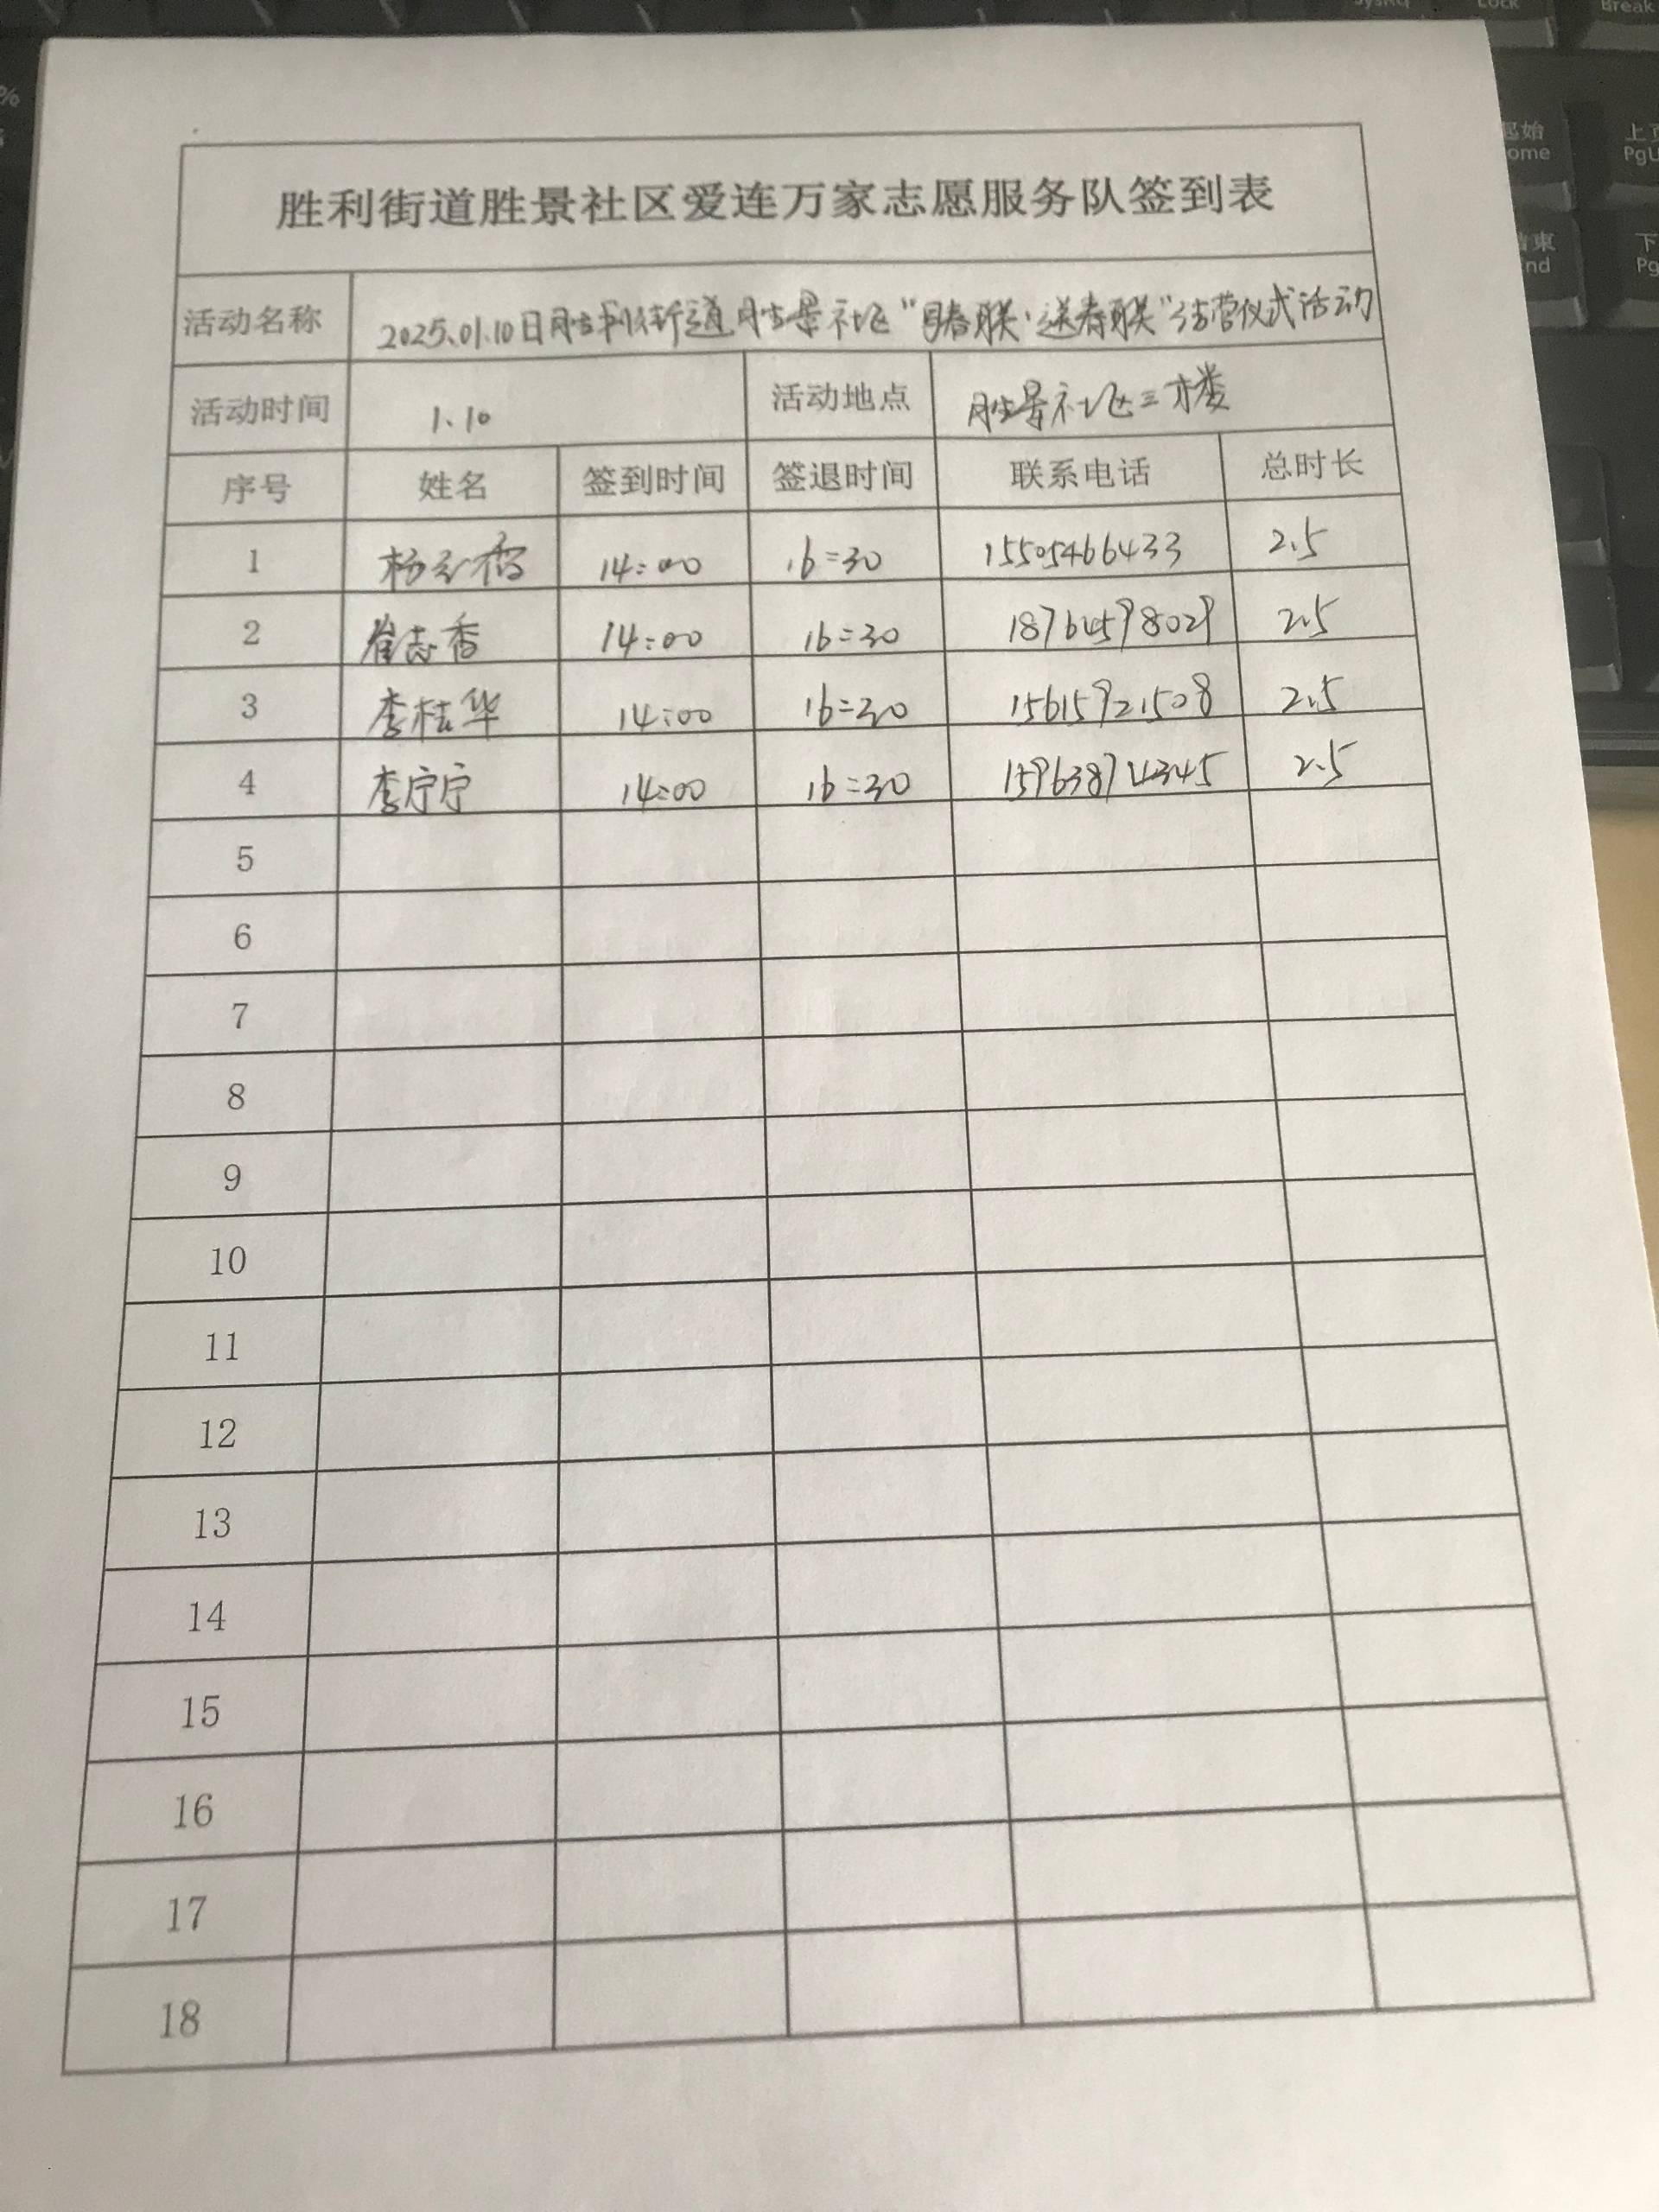 胜利街道胜景社区爱连万家志愿服务队签到表
活动名称 2025.01.10日胜利街道胜景社区“写春联·送春联”结营仪式活动
活动时间 1.10 活动地点 胜景社区三楼
序号 姓名 签到时间 签退时间 联系电话 总时长
1 杨云香 14:00 16:30 15505466433 2.5
2 崔志香 14:00 16:30 18764598029 2.5
3 李桂华 14:00 16:30 15615921508 2.5
4 李宁宁 14:00 16:30 2.5
5
6
7
8
9
10
11
12
13
14
15
16
17
18
Lock
Break
Home
PgU
End